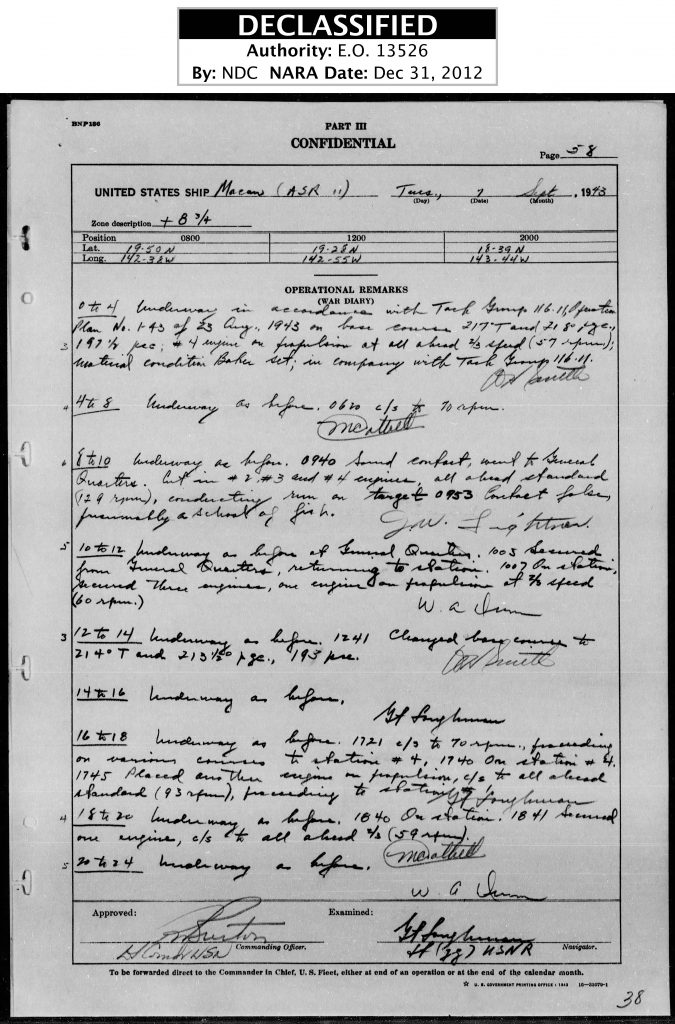 DECLASSIFIED
Authority: E.O. 13526
By: NDC NARA Date: Dec 31, 2012
BNP 186
PART III
CONFIDENTIAL
Page 58
UNITED STATES SHIP Macaw (ASR 11) Tues., 7 Sept, 1943
(Day) (Date) (Month)
Zone description + 8 3/4
Position 0800 1200 2000
Lat. 19-50N 19-28N 18-39N
Long. 142-38W 142-55W 143-44W
OPERATIONAL REMARKS
(WAR DIARY)
0 to 4 Underway in accordance with Task Group 116.11, Operation
Plan No. 1-43 of 23 Aug., 1943 on base course 217°T and 218° pgc.,
3 197½ psc; #4 engine on propulsion at all ahead ⅔ speed (57 rpm);
material condition Baker set; in company with Task Group 116.11.
Smith
4 4 to 8 Underway as before. 0620 c/s to 70 rpm.
6 8 to 10 Underway as before. 0940 Sound contact, went to General
Quarters. Cut in #2 #3 and #4 engines, all ahead standard
(129 rpm), conducting run on target 0953 Contact false,
presumably a school of fish.
J.W. Lightner
5 10 to 12 Underway as before at General Quarters. 1005 Secured
from General Quarters, returning to station. 1007 On station,
secured three engines, one engine on propulsion at ⅔ speed
(60 rpm.)
W. A. Dunn
3 12 to 14 Underway as before. 1241 Changed base course to
214° T and 213½° pgc., 193 psc.
Smith
14 to 16 Underway as before.
G F Loughman
16 to 18 Underway as before. 1721 c/s to 70 rpm., proceeding
on various courses to station #4, 1740 On station #4.
1745 Placed another engine on propulsion, c/s to all ahead
standard (93 rpm), proceeding to station
G F Loughman
4 18 to 20 Underway as before. 1840 On station. 1841 Secured
one engine, c/s to all ahead ⅔ (59 rpm).
5 20 to 24 Underway as before.
W. A. Dunn
Approved: Examined:
Burton G F Loughman
Lt Comdr USN Commanding Officer. Lt (jg) USNR Navigator.
To be forwarded direct to the Commander in Chief, U. S. Fleet, either at end of an operation or at the end of the calendar month.
☆ U. S. GOVERNMENT PRINTING OFFICE : 1943 16—35079-1
38